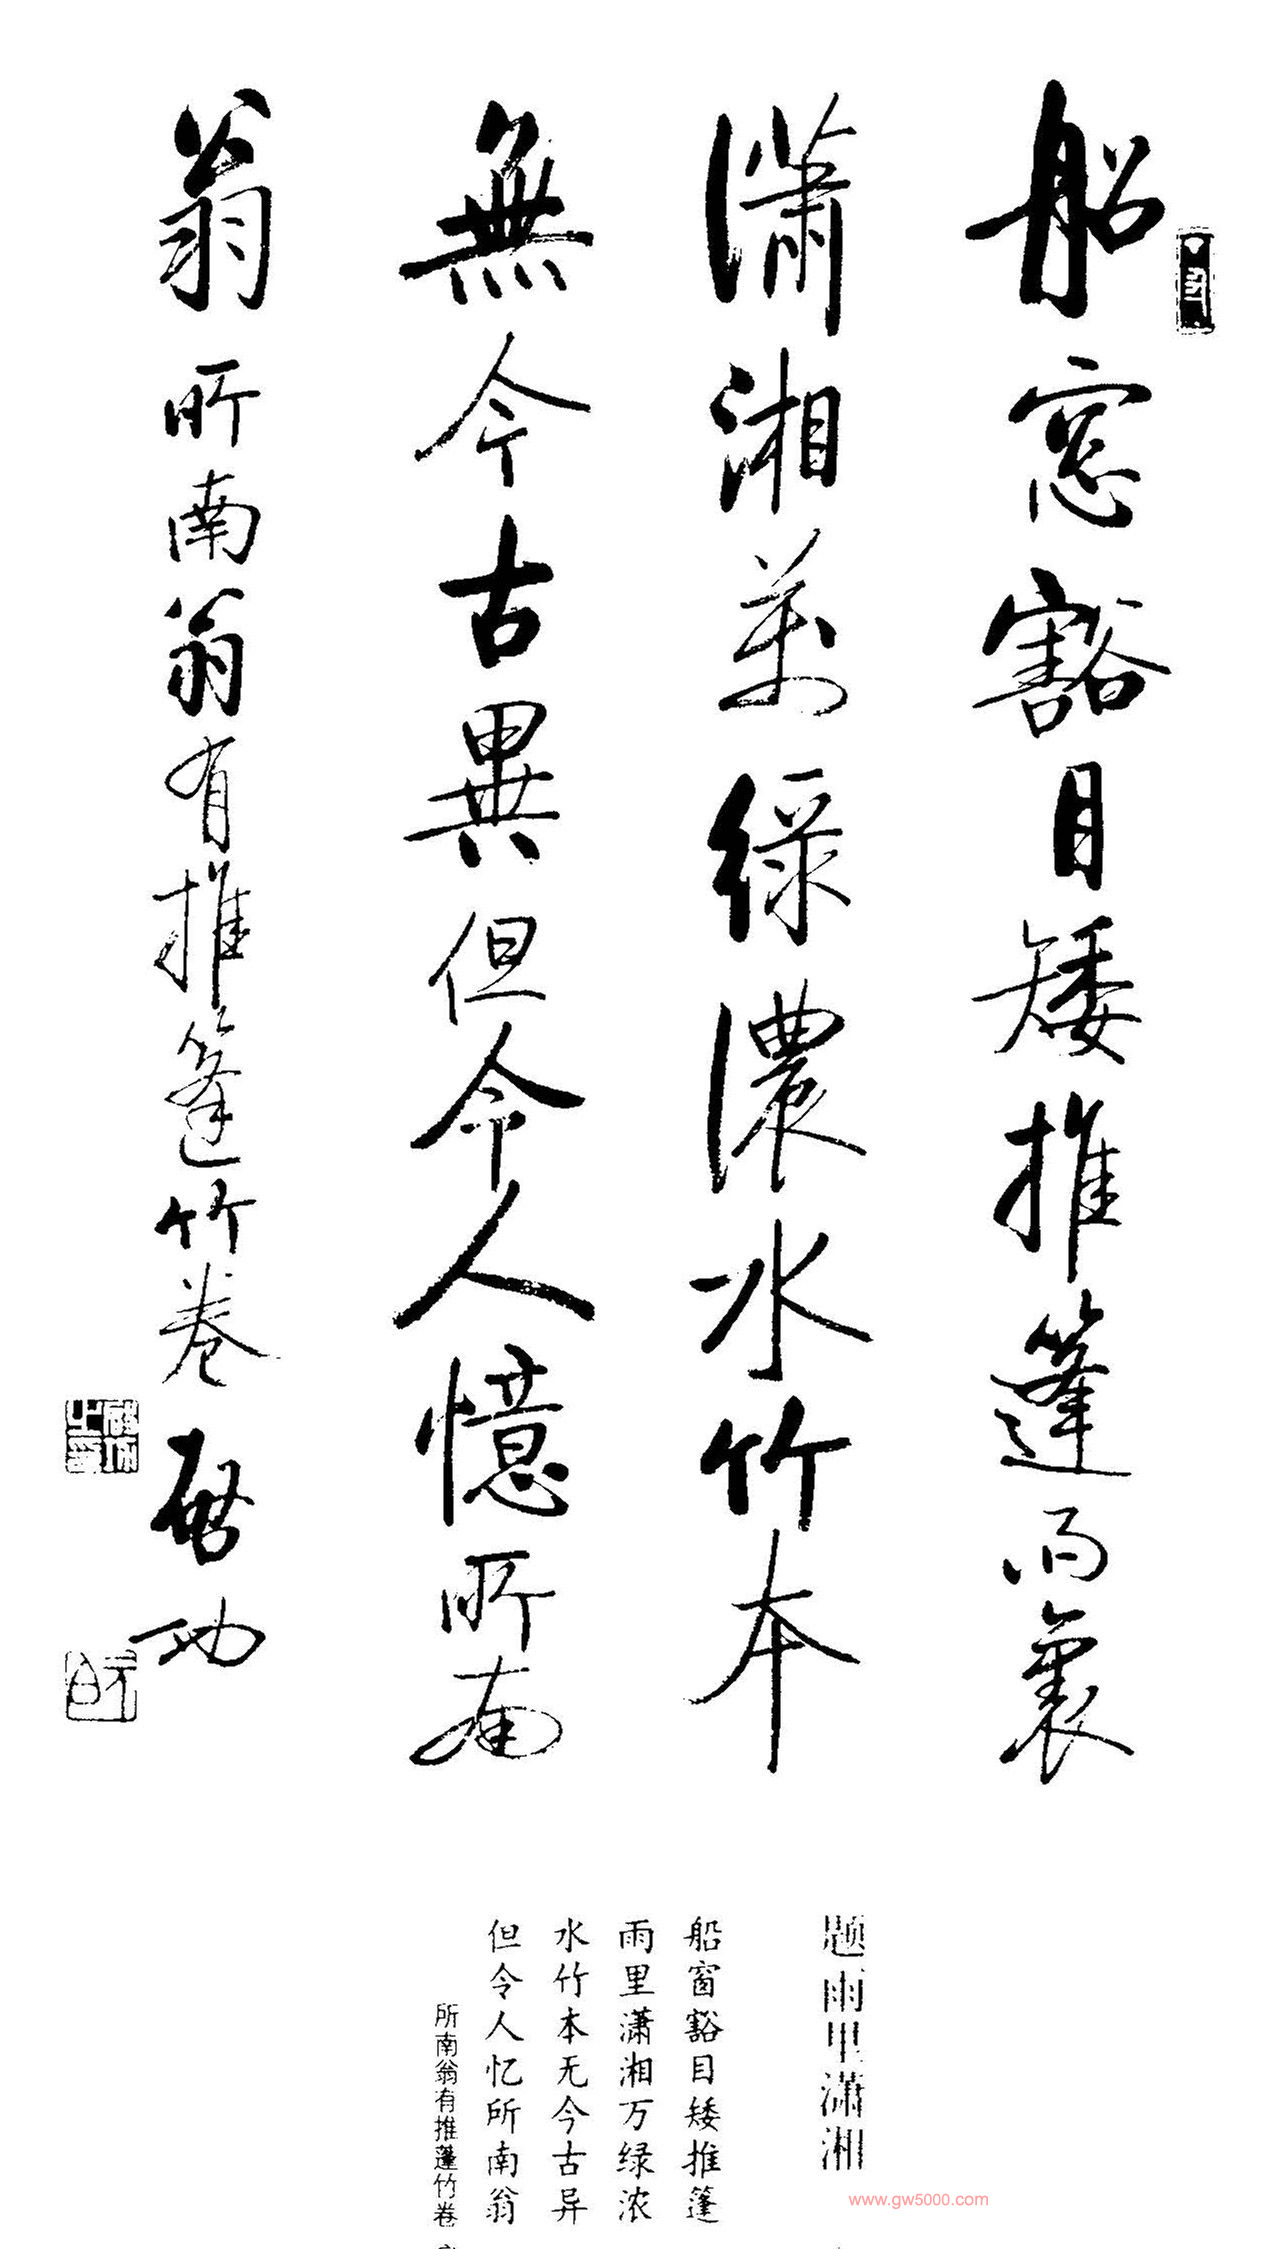 船窓豁目矮推篷雨裏
瀟湘萬綠濃水竹本
無今古異但令人憶所南
翁 所南翁有推篷竹卷 啓功
题雨里潇湘
船窗豁目矮推篷
雨里潇湘万绿浓
水竹本无今古异
但令人忆所南翁
所南翁有推篷竹卷
www.gw5000.com